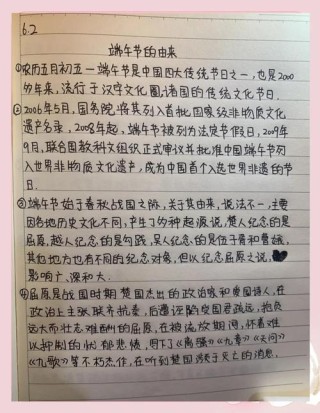 6.2
端午节的由来
①农历五月初五一端午节是中国四大传统节日之一,也是2000
多年来,流行于汉字文化圈诸国的传统文化节日.
②2006年5月,国务院将其列入首批国家级非物质文化
遗产名录,2008年起,端午节被列为法定节假日,2009年
9月,联合国教科文组织正式审议并批准中国端午节列
入世界非物质文化遗产,成为中国首个入选世界非遗的节
日.
③端午节始于春秋战国之际,关于其由来,说法不一,主要
因各地历史文化不同,产生了多种起源说,楚人纪念的是
屈原,越人纪念的是勾践,吴人纪念的是伍子胥和曹娥,
其他地方也有不同的纪念对象,但以纪念屈原之说,
影响广,深和大.
④屈原是战国时期楚国杰出的政治家和爱国诗人,在
政治上主张联齐抗秦,后遭诬陷受国君疏远,抱负
远大而壮志难酬的屈原,在被流放期间,怀着难
以抑制的忧郁悲愤,写下《离骚》《九章》《天问》
《九歌》等不朽杰作,在听到楚国濒于灭亡的消息.